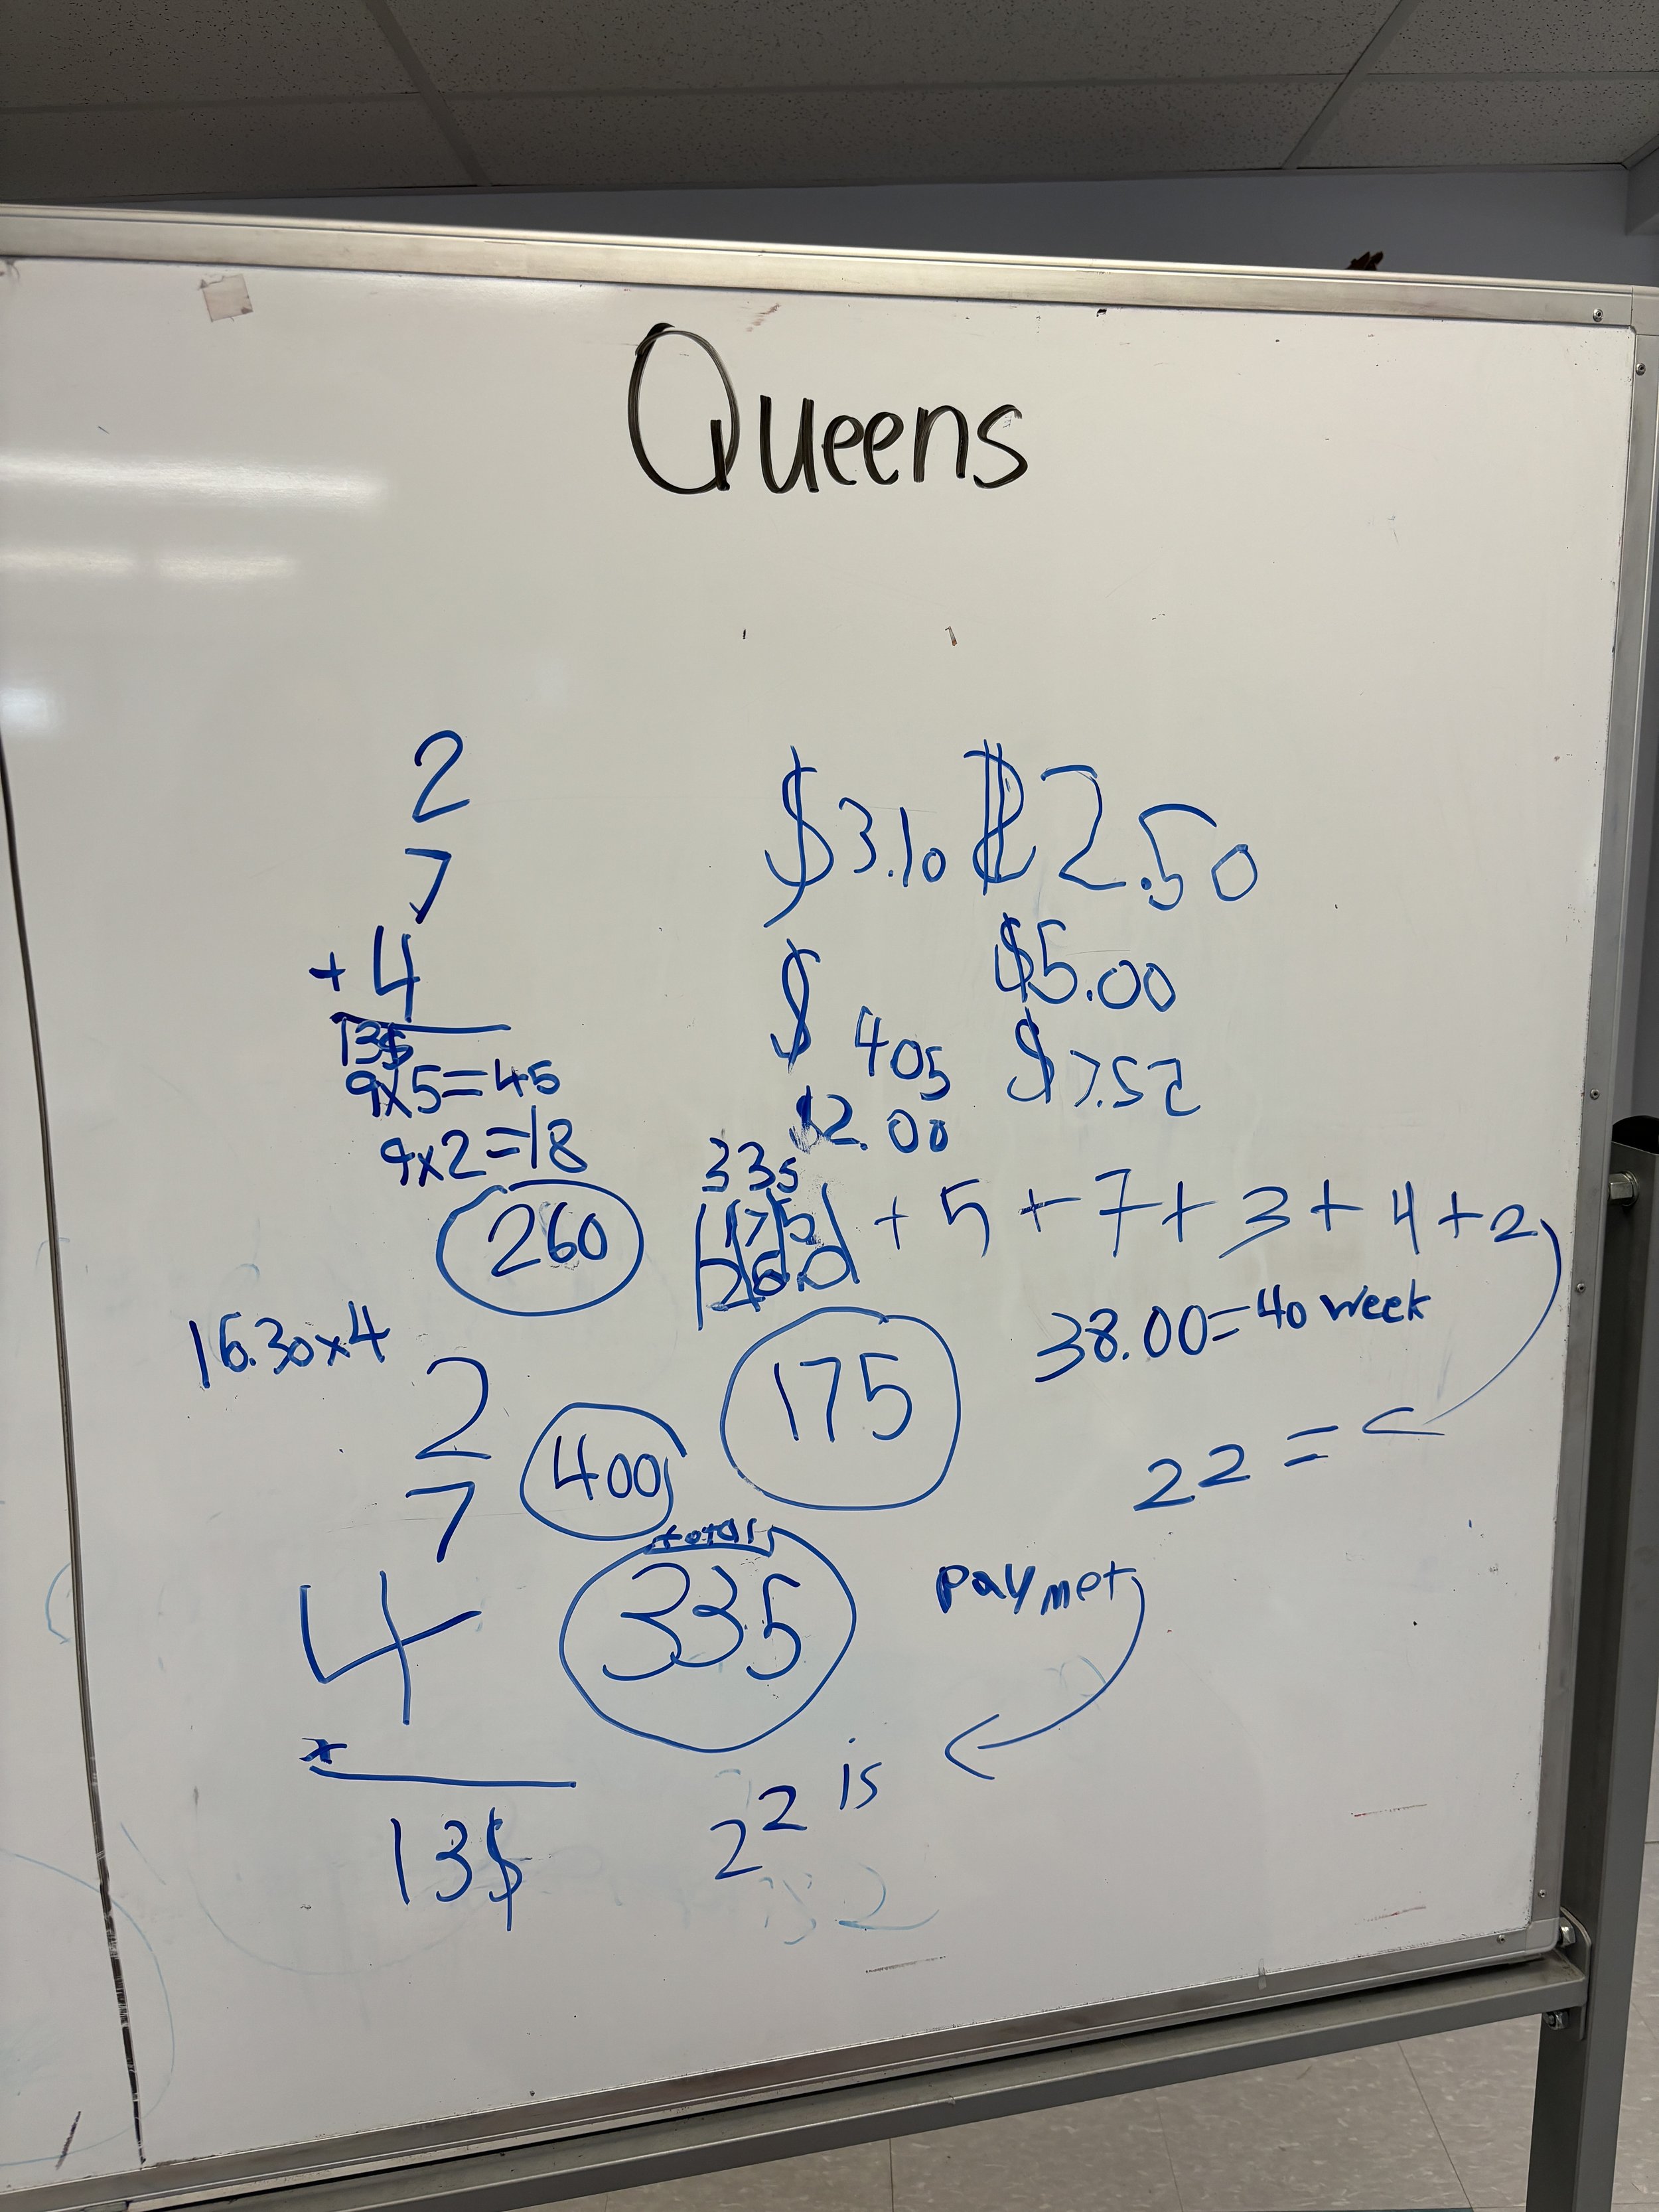 Queens
2
7
+ 4
13$
9x5=45
9x2=18
260
$3.10 $2.50
$ $5.00
405 $7.52
$2.00
335
+ 5 + 7 + 3 + 4 + 2
16.30x4
38.00=40 week
2
7
4
x
13$
400
175
22 =
total
335
paymet
22 is